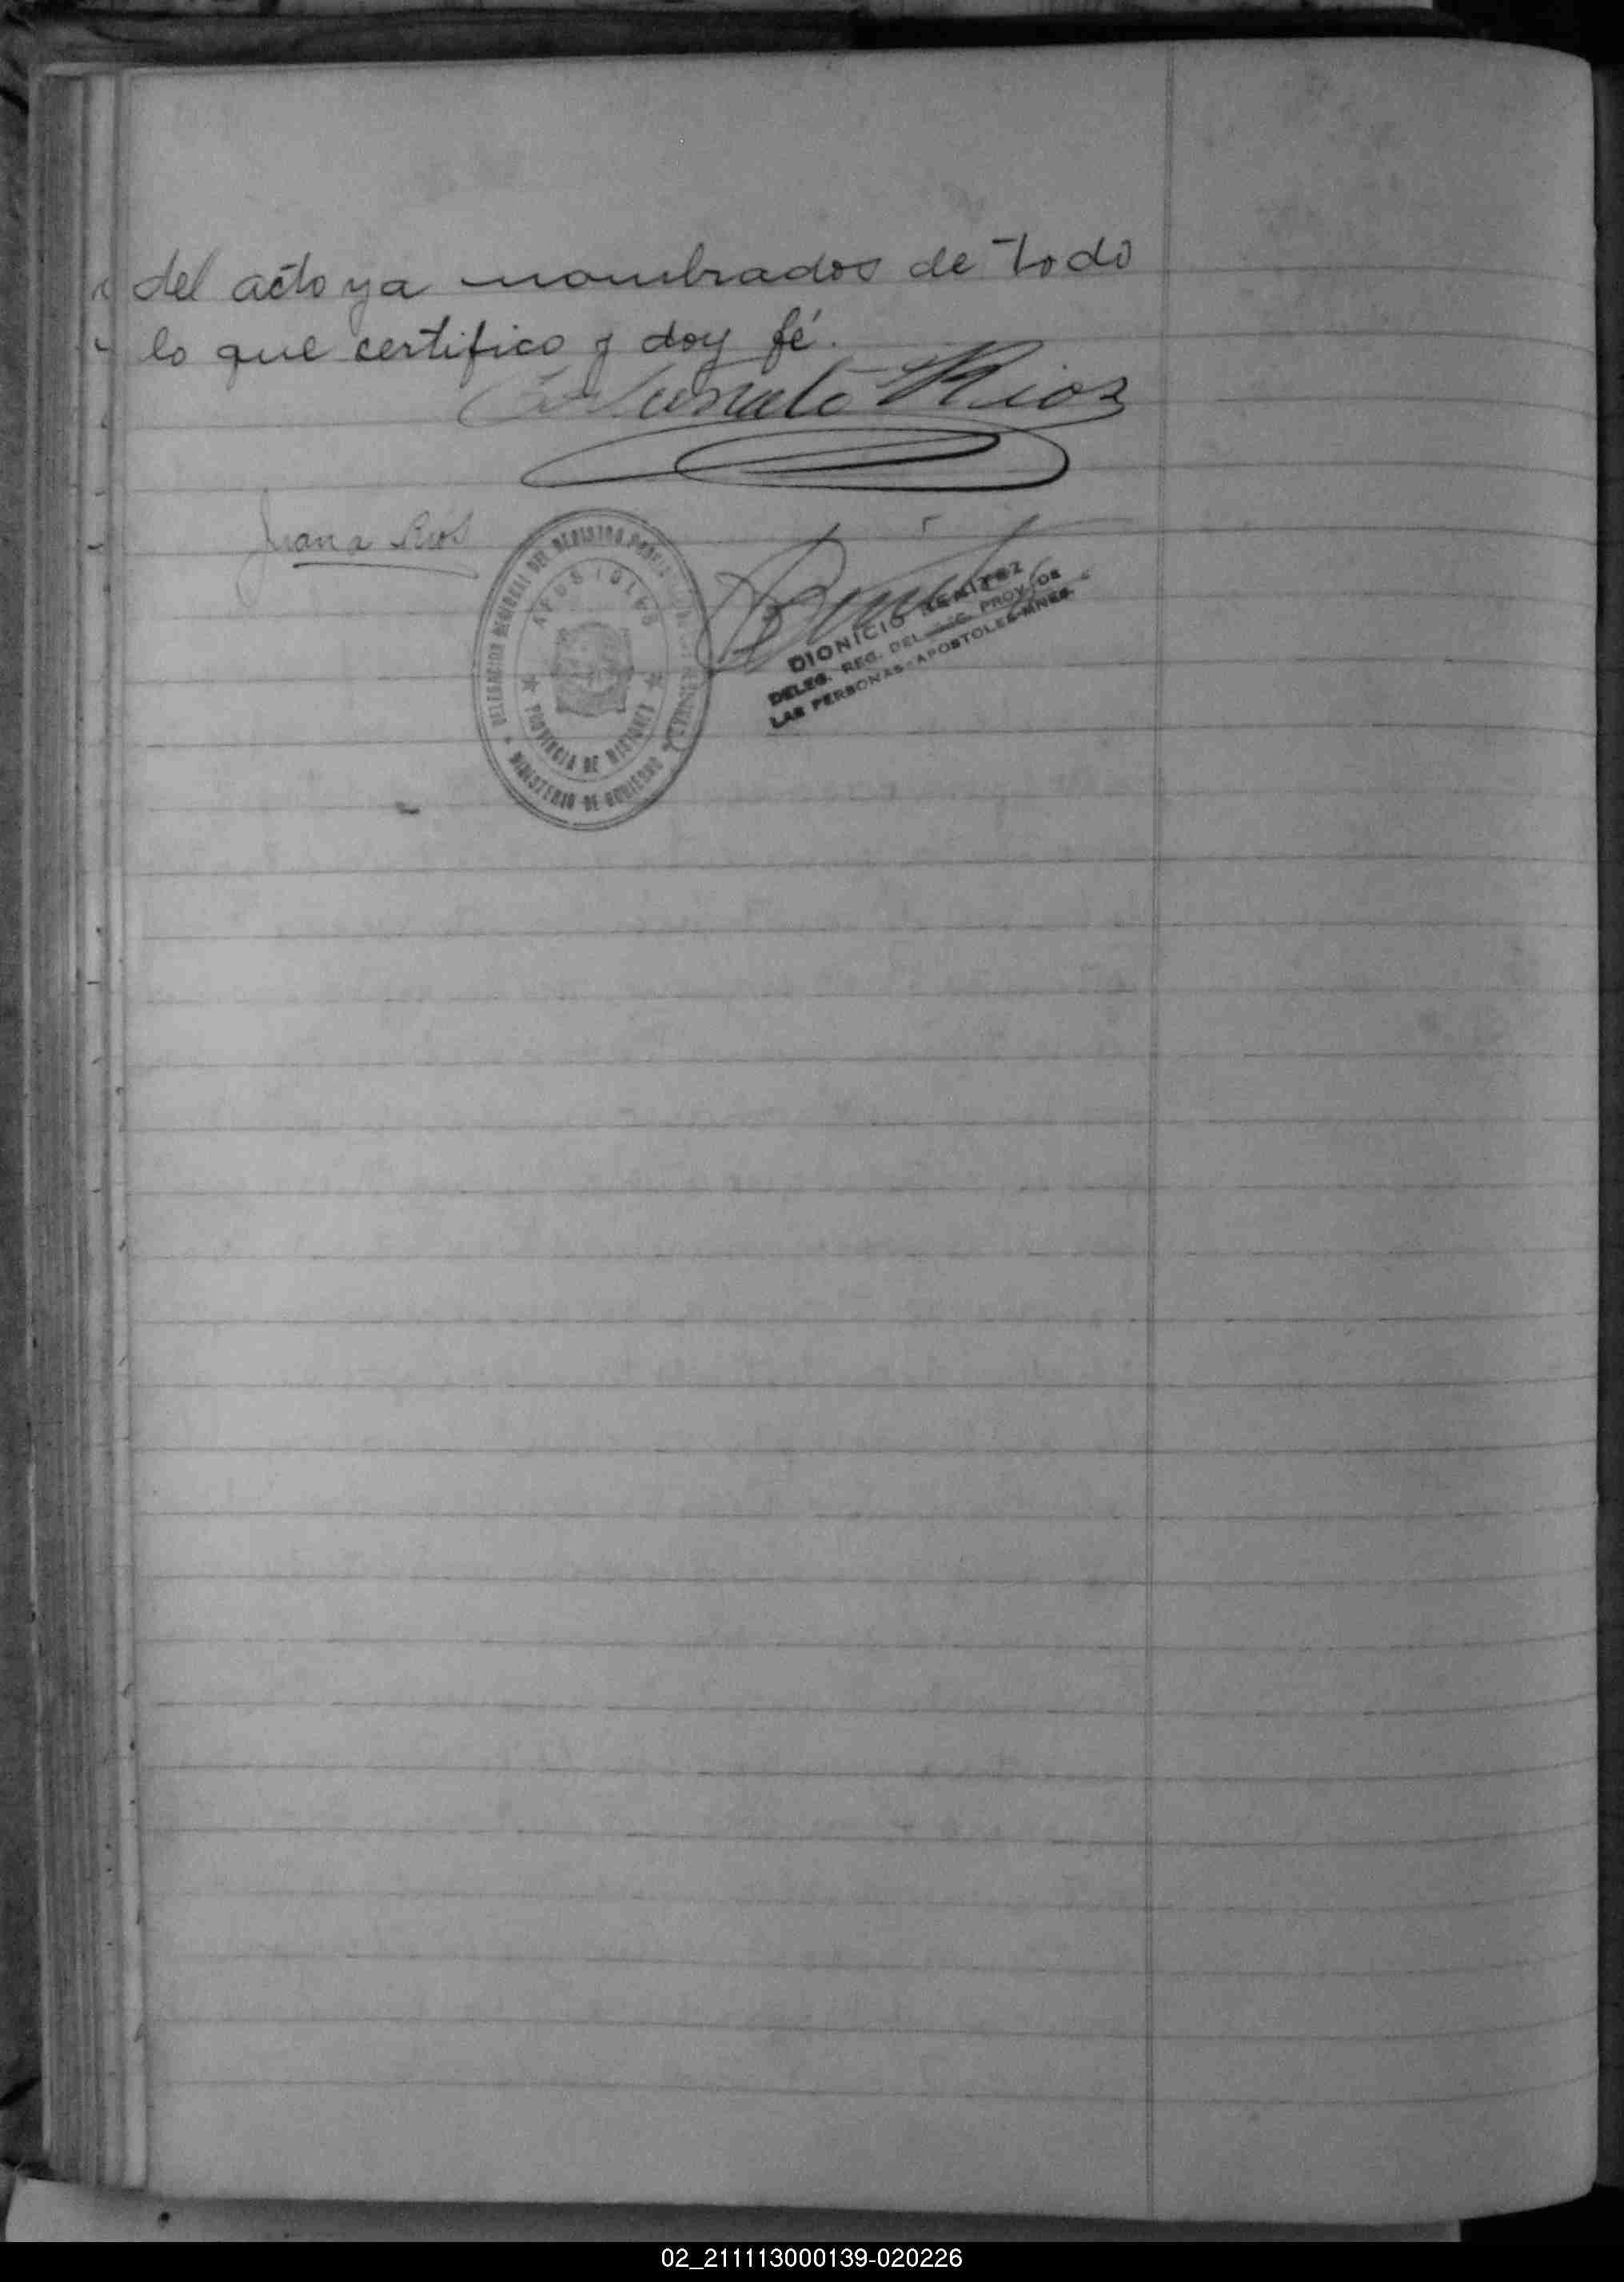 del acto ya nombrados de todo
lo que certifico y doy fé.
Rios
Juana Rios
DELEGACION REGIONAL DEL REGISTRO PROVINCIAL DE LAS PERSONAS
APOSTOLES
PROVINCIA DE MISIONES
MINISTERIO DE GOBIERNO
DIONICIO BENITEZ
DELEG. REG. DEL REG. PROV. DE
LAS PERSONAS - APOSTOLES - MNES.
02_211113000139-020226